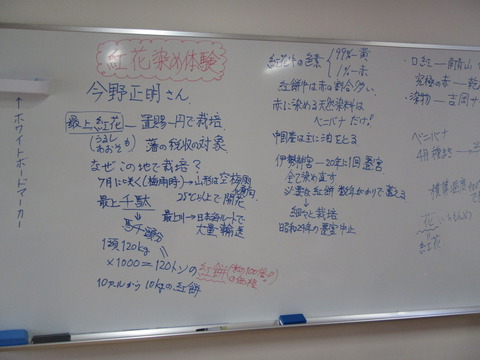 紅花染め体験
今野正明さん
最上紅花 — 置賜一円で栽培
うるし
あおそ も
藩の税収の対象
なぜこの地で栽培?
7月に咲く(梅雨時)→山形は空梅雨
25℃以上で開花
最上千駄
馬千頭分
最上川→日本海ルートで
大量輸送
1頭120kg
×1000=120トンの紅餅
10アールから10kgの紅餅
紅花の色素
99% — 黄
1% — 赤
紅餅は赤の割合多い
赤に染める天然染料は
ベニバナだけ!
中国産は主に油をとる
伊勢神宮 — 20年に1回 遷宮
全て染め直す
必要な紅餅 数年がかりで蓄える
細々と栽培
昭和24年の遷宮中止
・口紅 —
究極の赤 —
・染物 — 吉岡
ベニバナ
花
紅花
↑ホワイトボードマーカー